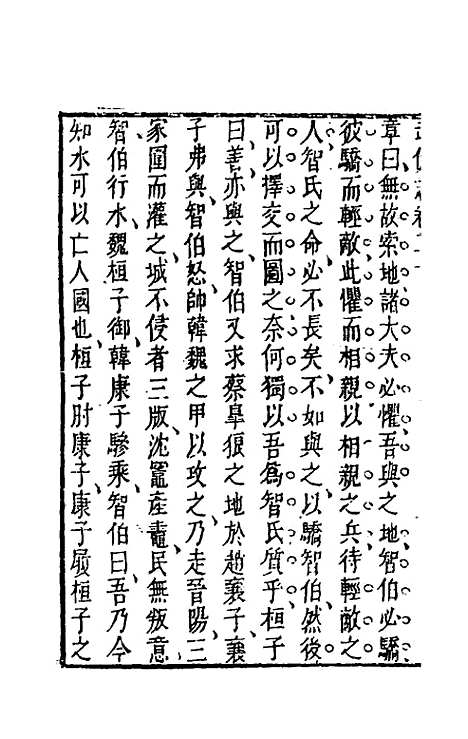 章曰無故索地諸大夫必懼吾與之地智伯必驕
彼驕而輕敵此懼而相親以相親之兵待輕敵之
人智氏之命必不長矣不如與之以驕智伯然後
可以擇交而圖之奈何獨以吾爲智氏質乎桓子
曰善亦與之智伯又求蔡皐狼之地於趙襄子襄
子弗與智伯怒帥韓魏之甲以攻之乃走晉陽三
家圍而灌之城不侵者三版沈竈產鼃民無叛意
智伯行水魏桓子御韓康子驂乘智伯曰吾乃今
知水可以亡人國也桓子肘康子康子履桓子之